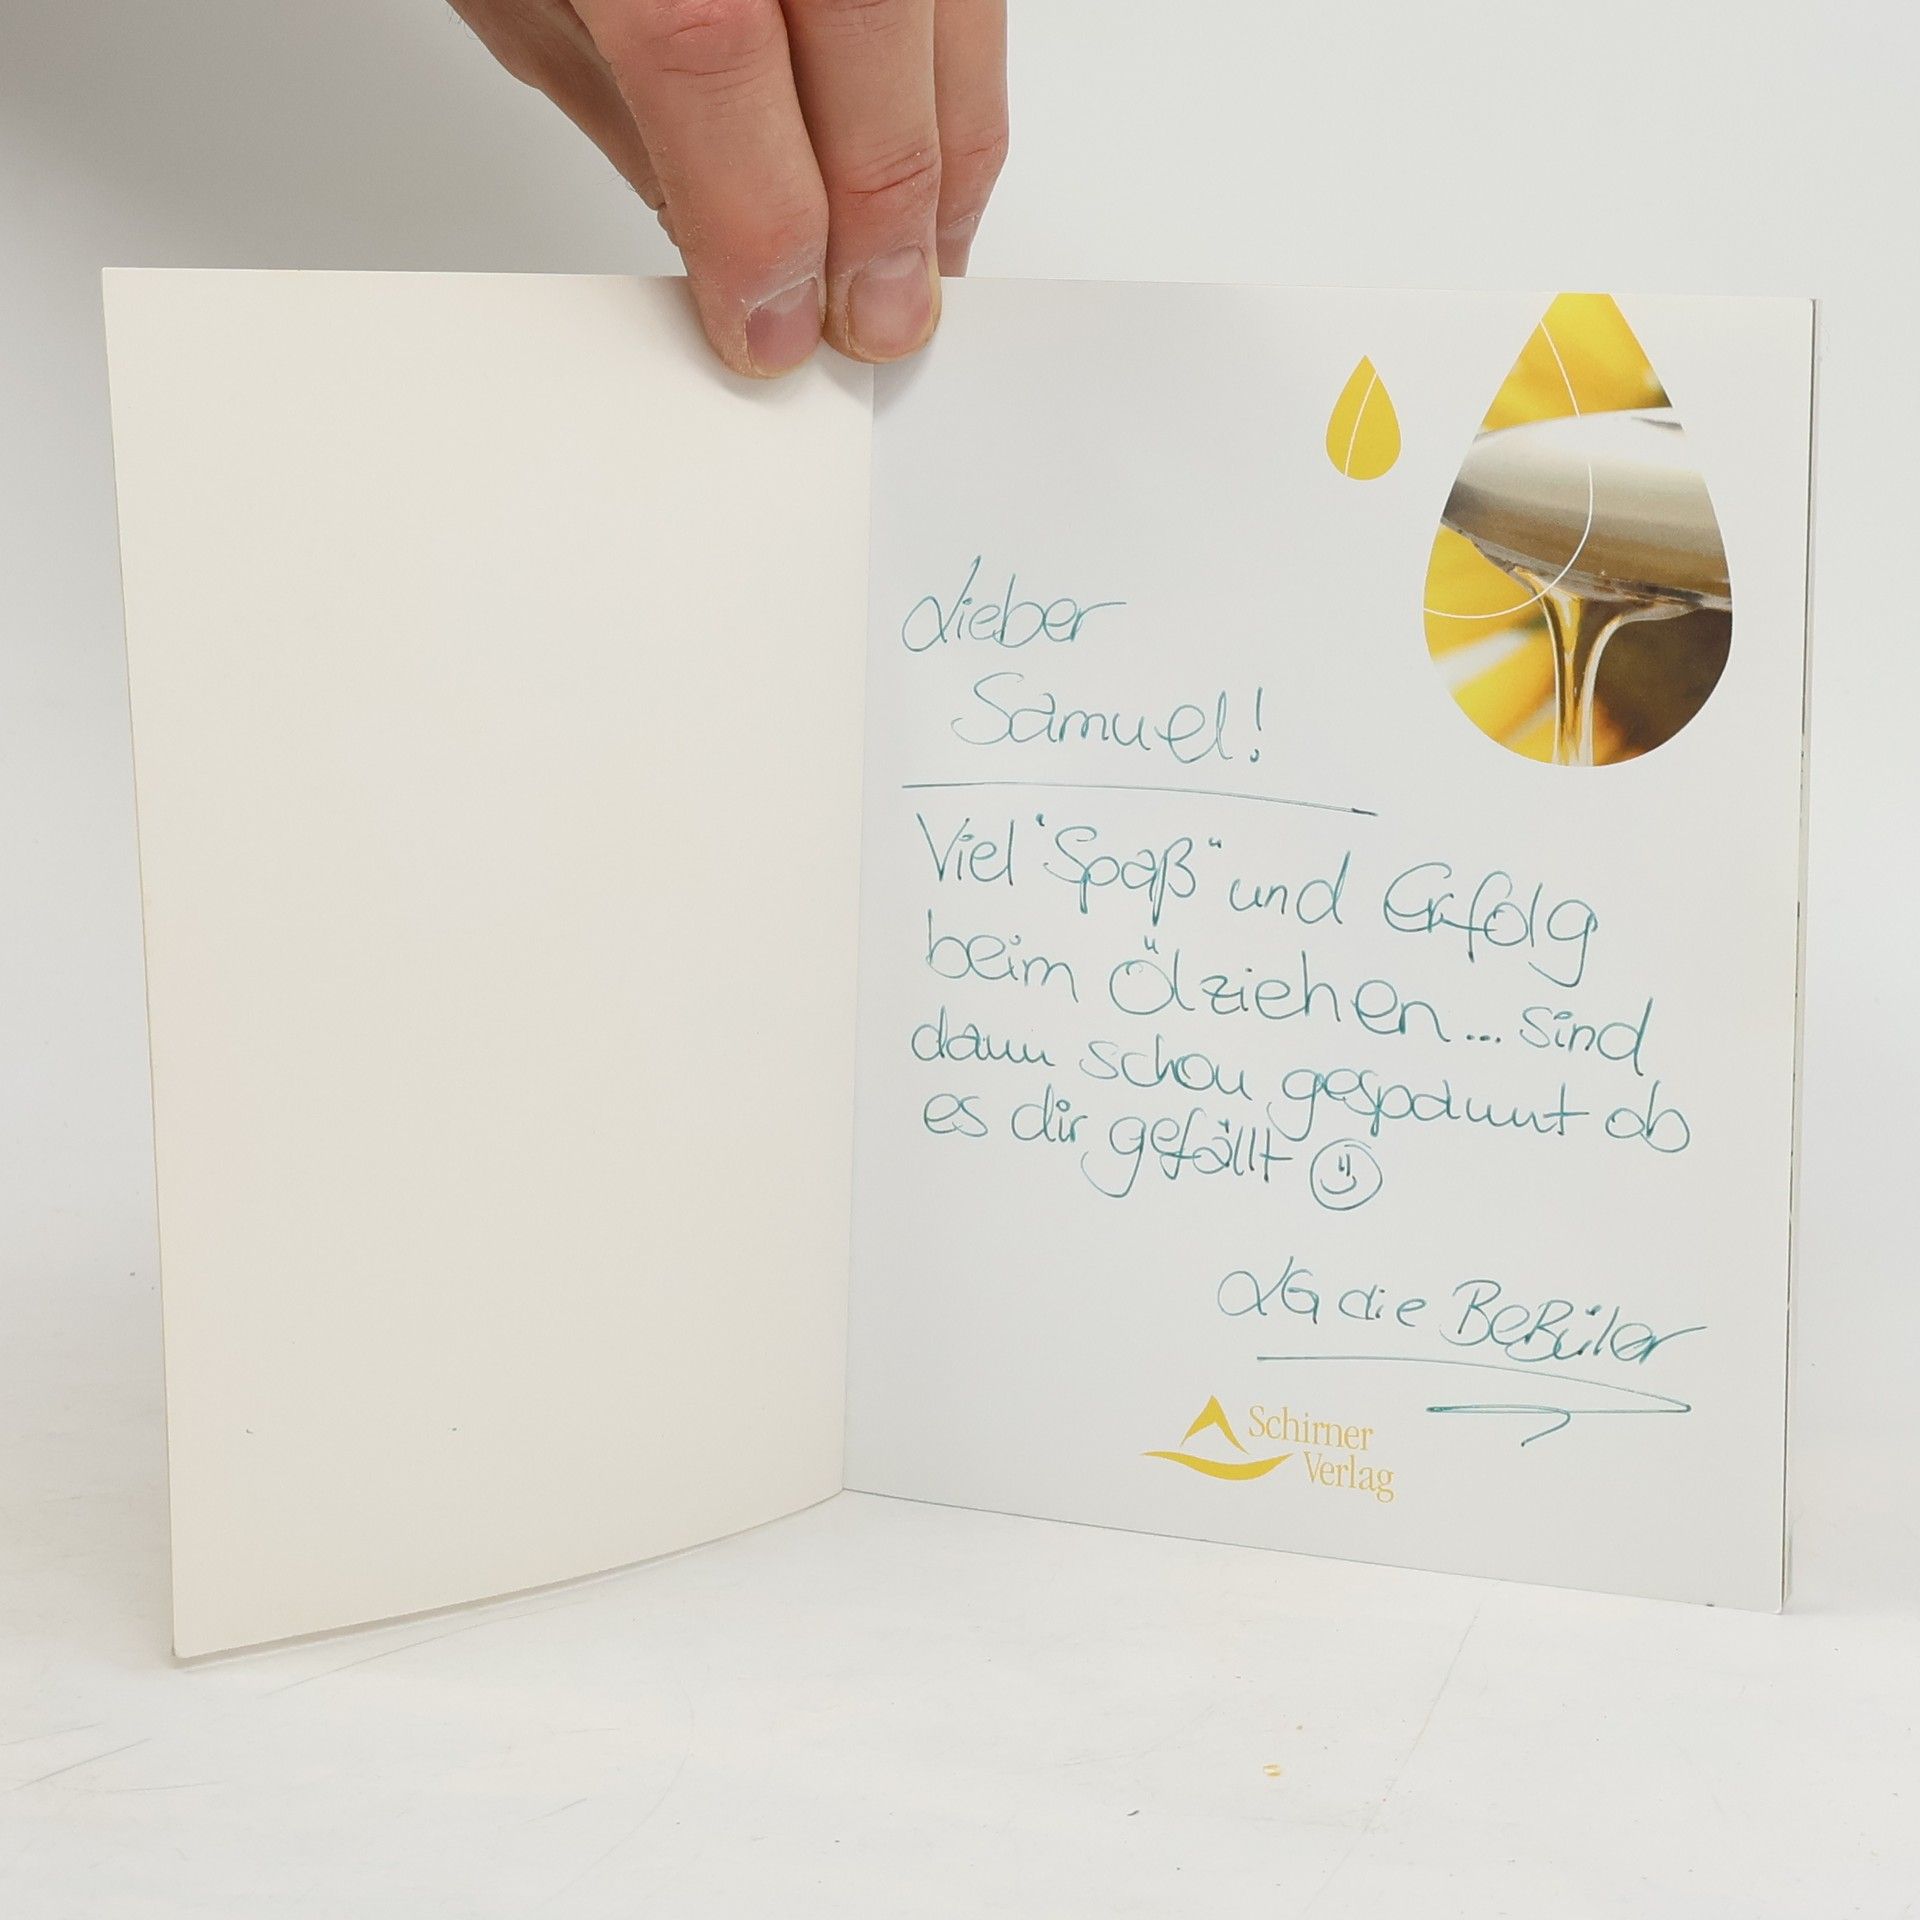 Lieber
Samuel!
Viel "Spaß" und Erfolg
beim Ölziehen... sind
dann schon gespannt ob
es dir gefällt
LG die BeBüler
Schirner
Verlag